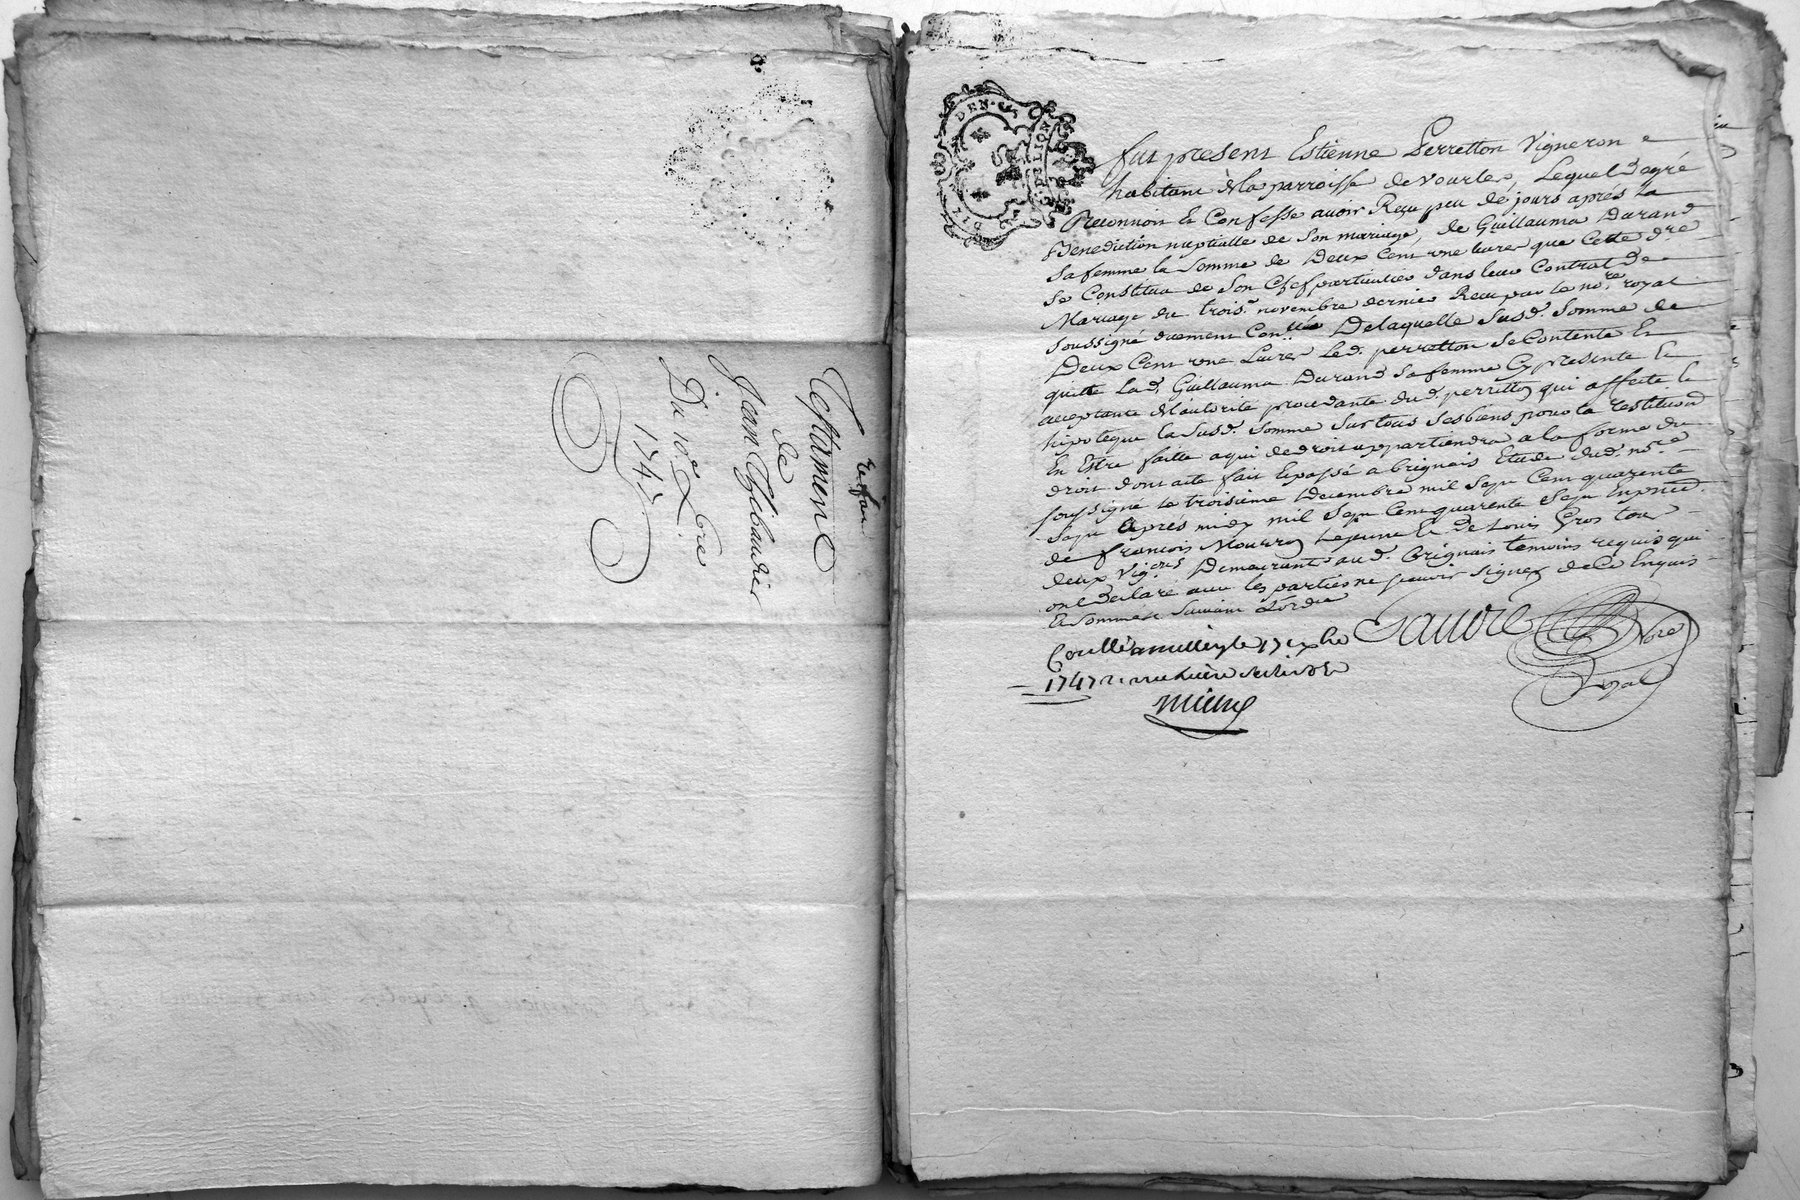 refair
Testament
de
Jean Thibaudier
Du 10e Xbre
1747
GEN. DE LION
fut present Estienne Perretton Vigneron e
habitant de la parroisse de vourles, Lequel de gré
Reconnoit et Confesse avoir Reçu peu de jours après la
Benediction nuptialle de Son mariage, de Guillauma Durand
Sa femme la Somme de Deux Cent une livre que Cette dre
Se Constitua de Son Chef particulier dans leur Contrat de
Mariage du trois.e novembre dernier Reçu par le nore. royal
Soussigné duement Conllé Delaquelle Susd. Somme de
Deux Cent une Livres Led. perretton Se Contente Et
quitte Lad. Guillauma Durand Sa femme Cy presente Et
acceptante de l'autorité procedante dud. perretton qui affecte, Et
hipoteque la Susd. Somme Sur tous Ses biens pour la restitution
En Estre faitte a qui de droit appartiendra a la forme du
droit dont acte fait Et passé a Brignais Etude dud. nore
Soussigné Le troisieme Decembre mil Sept Cent quarente
Sept après midy mil Sept Cent quarente Sept En prnce.
de françois Mourron Lejeune Et de Louis Gros tous
deux vig.erons Demeurants aud. Brignais temoins requis qui
ont Declaré avec les parties ne Scavoir Signer de Ce Enquis
Et Sommés Suivant L'ordce
Conllé a milleryle 17 xbre
1747 R.
Nore
Royal